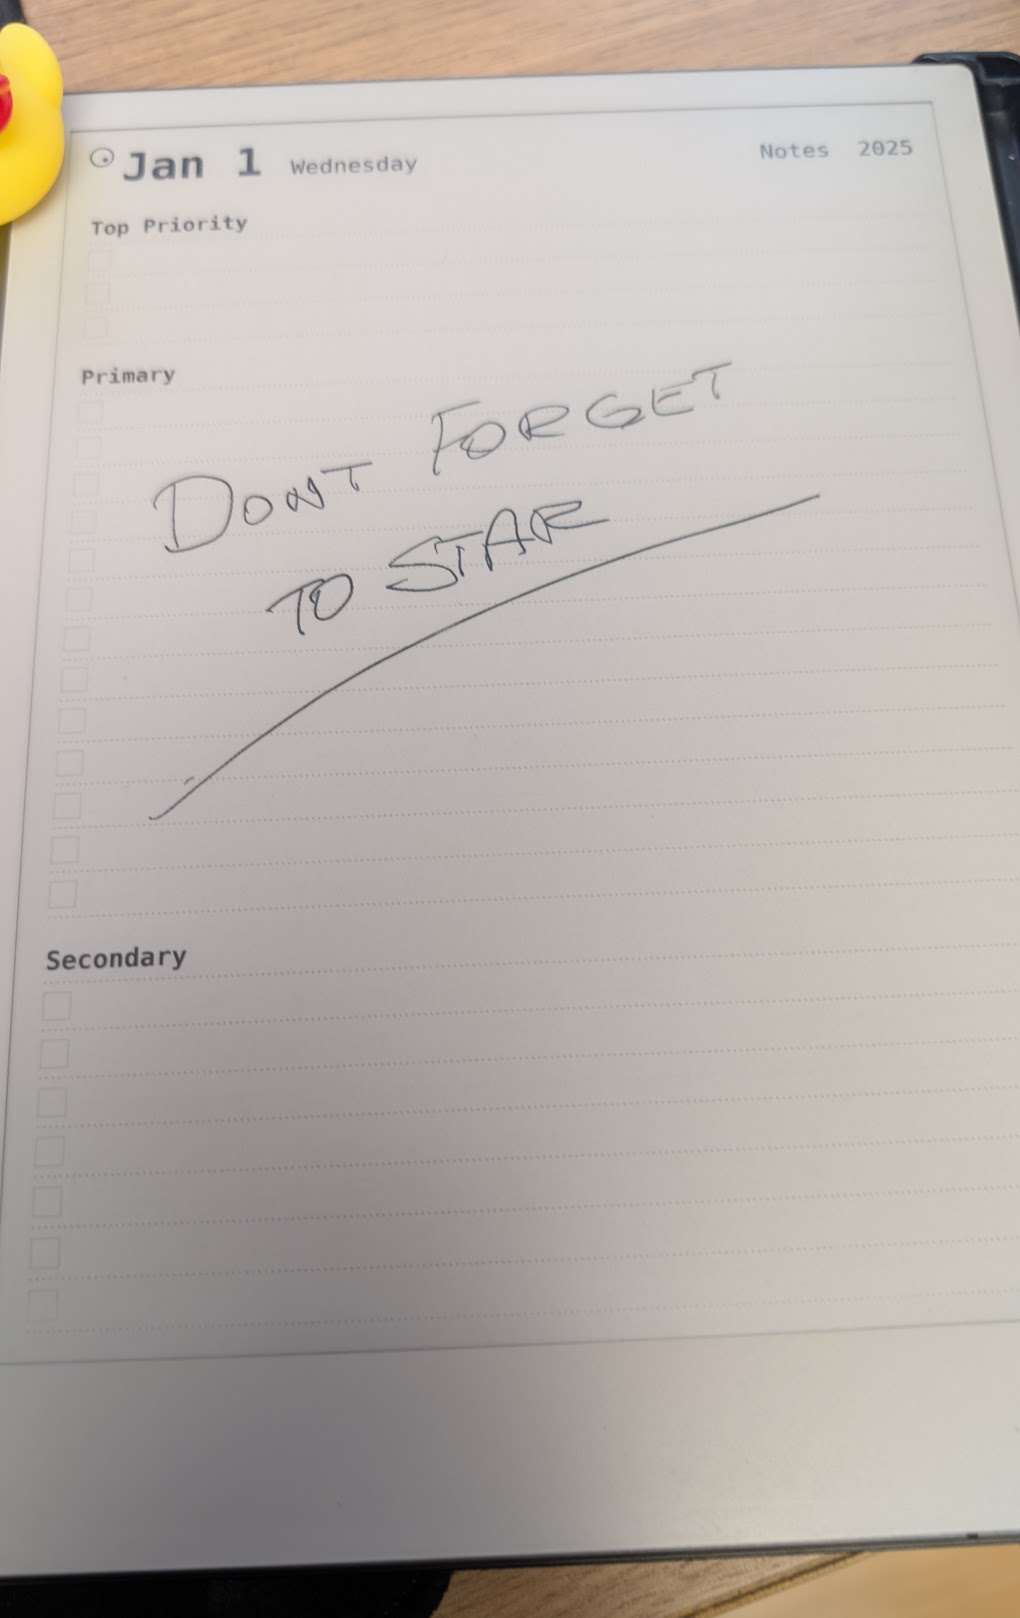 Jan 1 Wednesday Notes 2025
Top Priority
Primary
DONT FORGET
TO STAR
Secondary